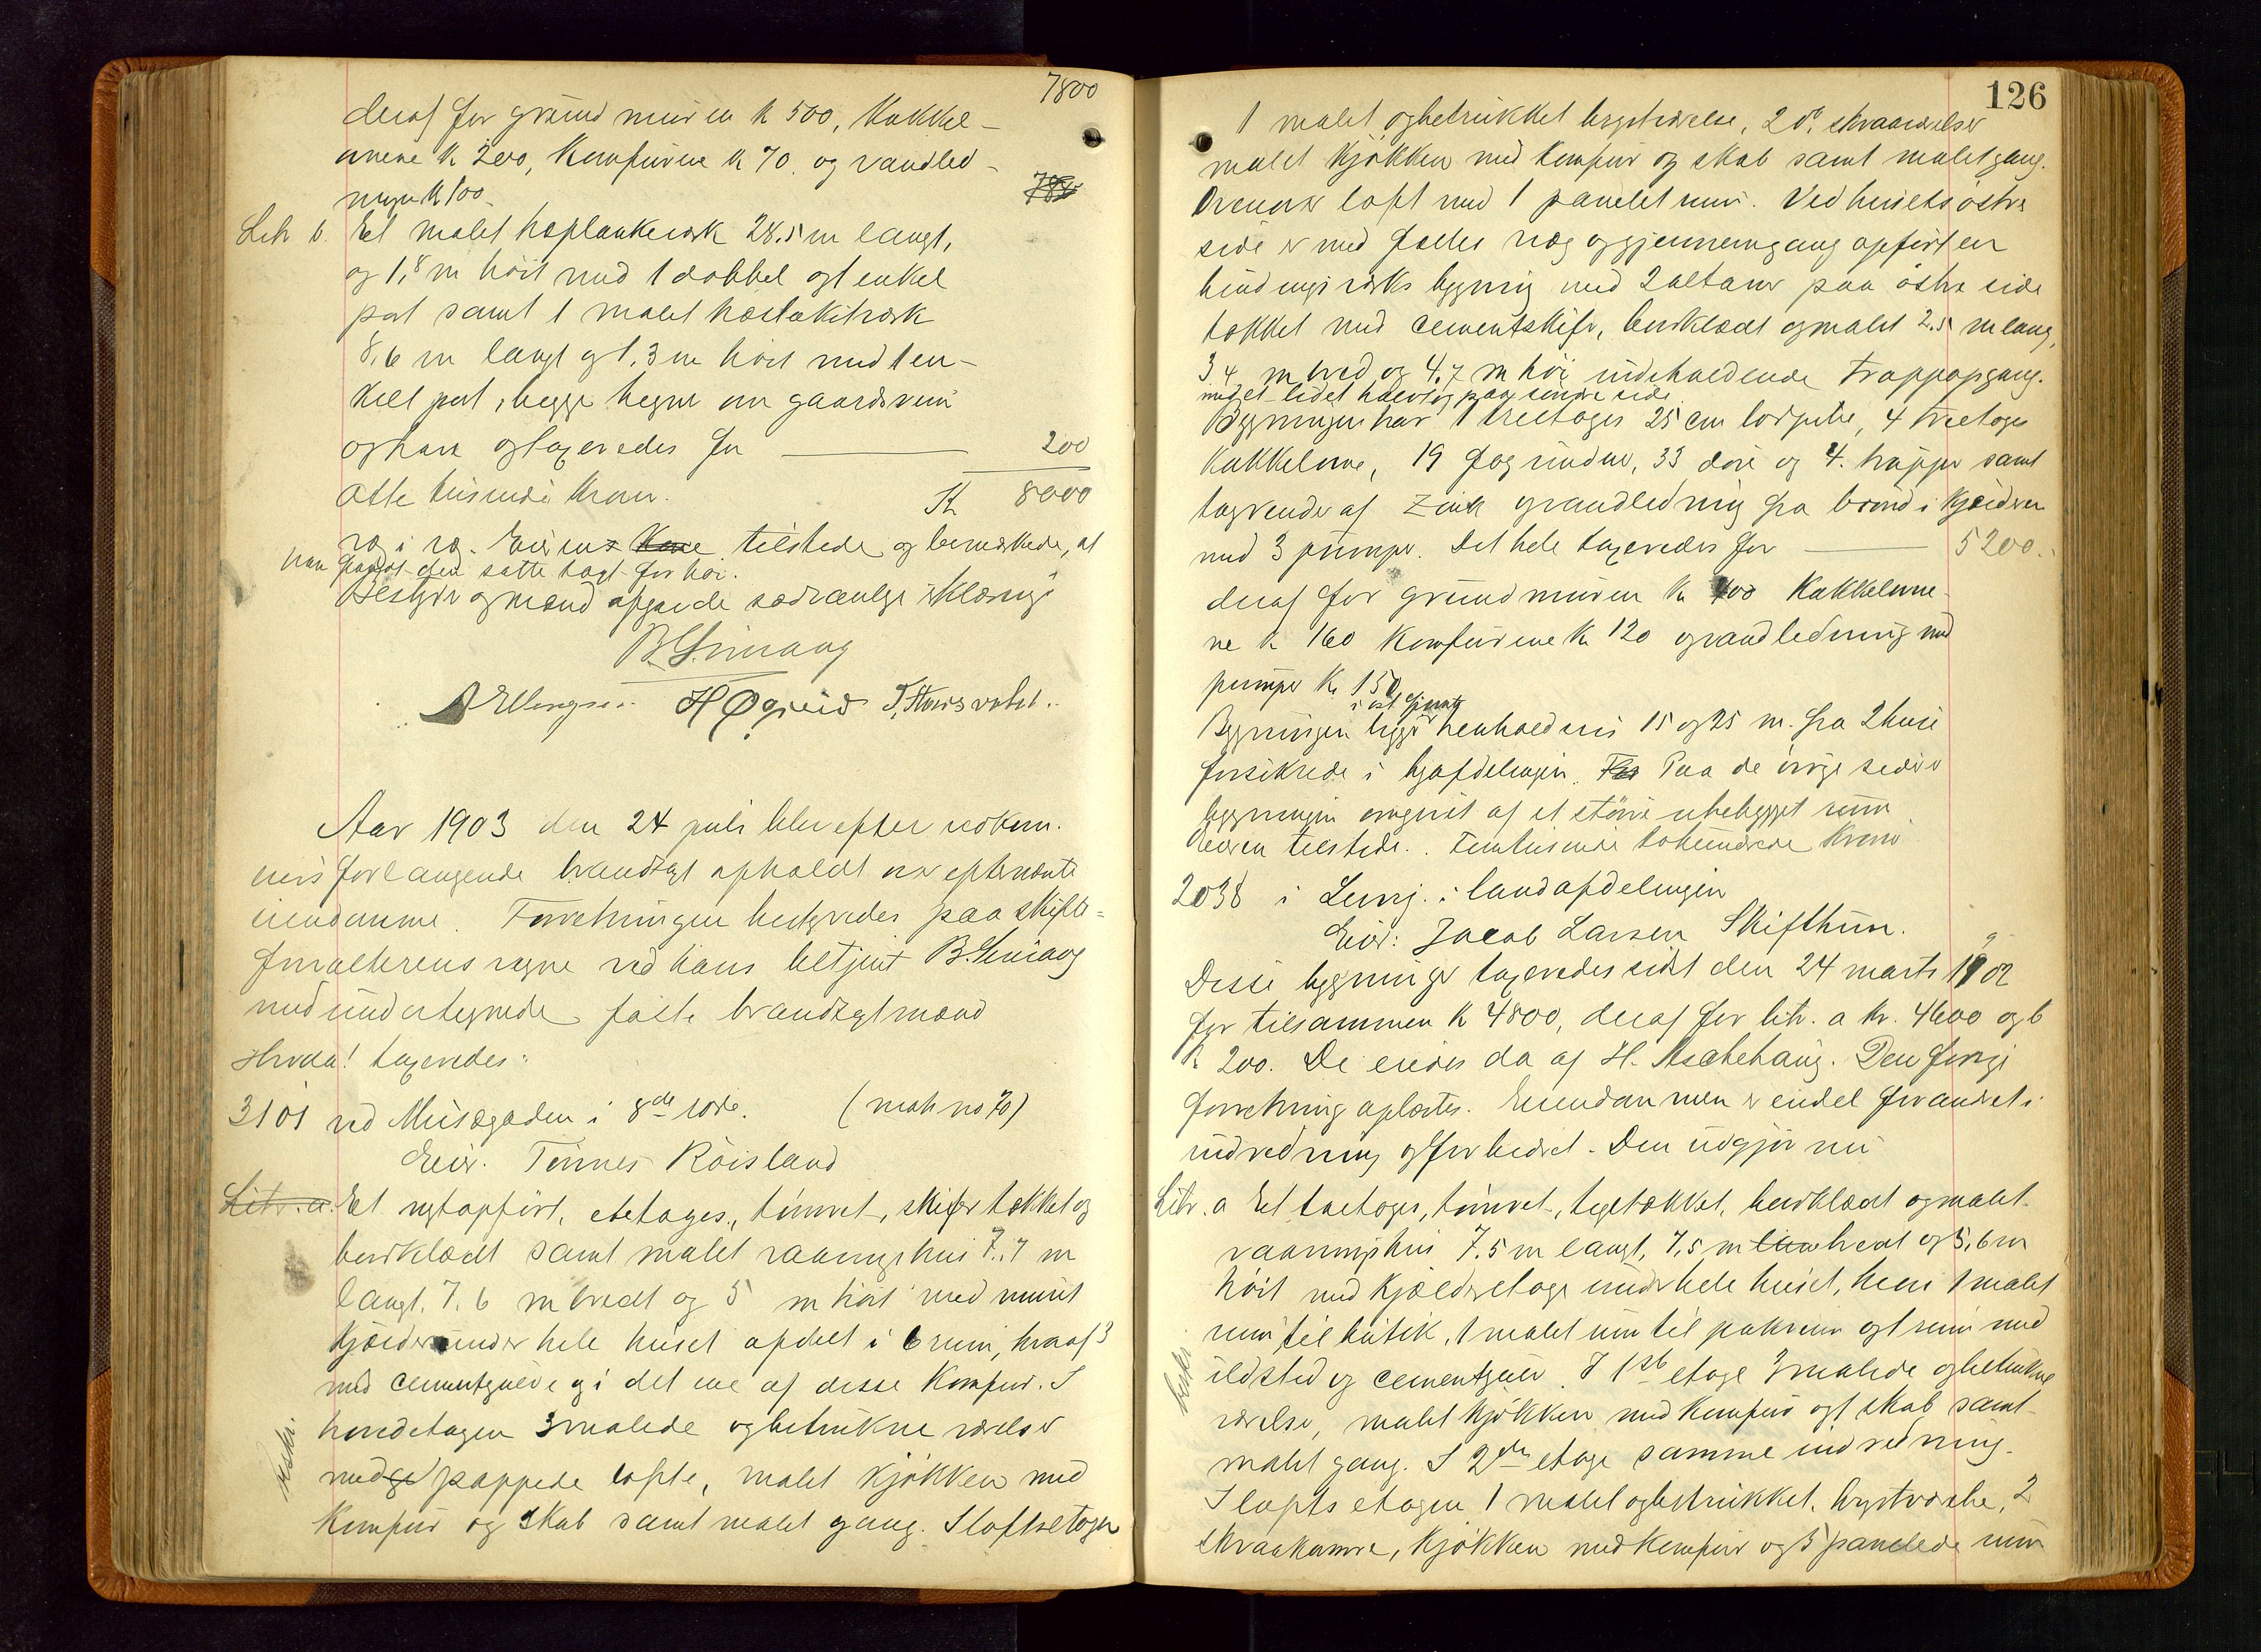 7800
deraf for grundmuren k 500, Kakkel-
ovnene k 200, Komfurene k 70. og vandled-
ningen k 100.
Litr b. Et malet høplankeværk 28.5 m langt,
og 1,8 m høit med 1 dobbel og 1 enkel
port samt 1 malet høistakitværk
8,6 m langt og 1.3 m høit med 1 en-
kelt port, begge hegne om gaardsrum
og have og taxeredes for 200
Otte tusinde kroner. K 8000
r. i r. Eieren tilstede og bemærkede, at
han fandt den satte taxt for høi.
Bestyrer og mænd afgav de sædvanlige erklæringer
B. Simang
A Ellingsen. H Øgreid T. Hausvolst..
Aar 1903 den 24 juli blev efter vedkom.
mers forlangende brandtaxt afholdt over efternævnte
eiendomme. Forretningen bestyredes paa skifte=
forvalterens vegne ved hans betjent B. Simang
med undertegnede faste brandtaxtmænd
Hvoda! taxeredes:
3101 ved Museegaden i 8de rode. (matr no 70)
Eier. Tønnes Røisland
Litr. a. Et nyt opført, etetages., tømret, skifer tækket og
bordklædt samt malet vaaningshus 7.7 m
langt. 7.6 m bredt og 5 m høit med muret
kjælder under hele huset afdelt i 6 rum, hvoraf 3
med cementgulve og i det ene af disse komfur. I
hovedetagen 3 malede og betrukne værelser
med pappede lofte, malet kjøkken med
komfur og skab samt malet gang. I loftsetagen
126
1 malet og betrukket kvistværelse, 2 do. skraaværelser
malet kjøkken med komfur og skab samt malet gang.
Ovenover loft med 1 panelet rum. Ved husets østre
side er med fælles væg og gjennemgang opført en
bindingsværks bygning med 2 altaner paa østre side
tækket med cementskifer, bordklædt og malet 2.5 m lang,
3.4 m bred og 4.7 m høi indeholdende trappopgang.
med et lidet halvtag paa søndre side.
Bygningen har 1 treetages 25 cm lodpibe, 4 treetages
Kakkelovne, 19 fag vinduer, 33 døre og 4. trapper samt
tagrender af zink og vandledning fra brønd i kjælderen
med 3 pumper. Det hele taxeredes for 5200.
deraf for grundmuren k 400 Kakkelovne-
ne k 160 Komfurene k 120 og vandledning med
pumper k. 150
i øst grænse
Bygningen ligger henholdsvis 15 og 25 m. fra 2 huse
forsikrede i byafdelingen. Paa de øvrige sider er
bygningen omgivet af et større ubebygget rum
Eieren tilstede. Femtusinde tohundrede kroner.
2038 i Lervig. i landafdelingen
Eier: Jacob Larsen Skifthun.
Disse bygninger taxeredes sidst den 24 marts 1902
for tilsammen k 4800, deraf for litr. a kr. 4600 og b
k 200. De eiedes da af H. Aschehaug. Den forrige
forretning oplæstes. Eiendommen er endel forandret i
indredning og forbedret. Den udgjør nu
Litr. a Et toetages, tømret, tegltækket, bordklædt og malet
vaaningshus 7.5 m langt, 7,5 m bredt og 5,6 m
høit med kjælderetage under hele huset, heri 1 malet
rum til butik, 1 malet rum til pakrum og 1 rum med
ildsted og cementgulv. I 1ste etage 3 malede og betrukne
værelser, malet kjøkken med komfur og 1 skab samt
malet gang. I 2den etage samme indredning.
I loftsetagen 1 malet og betrukket kvistværelse, 2
skraakamre, kjøkken med komfur og 5 panelede rum